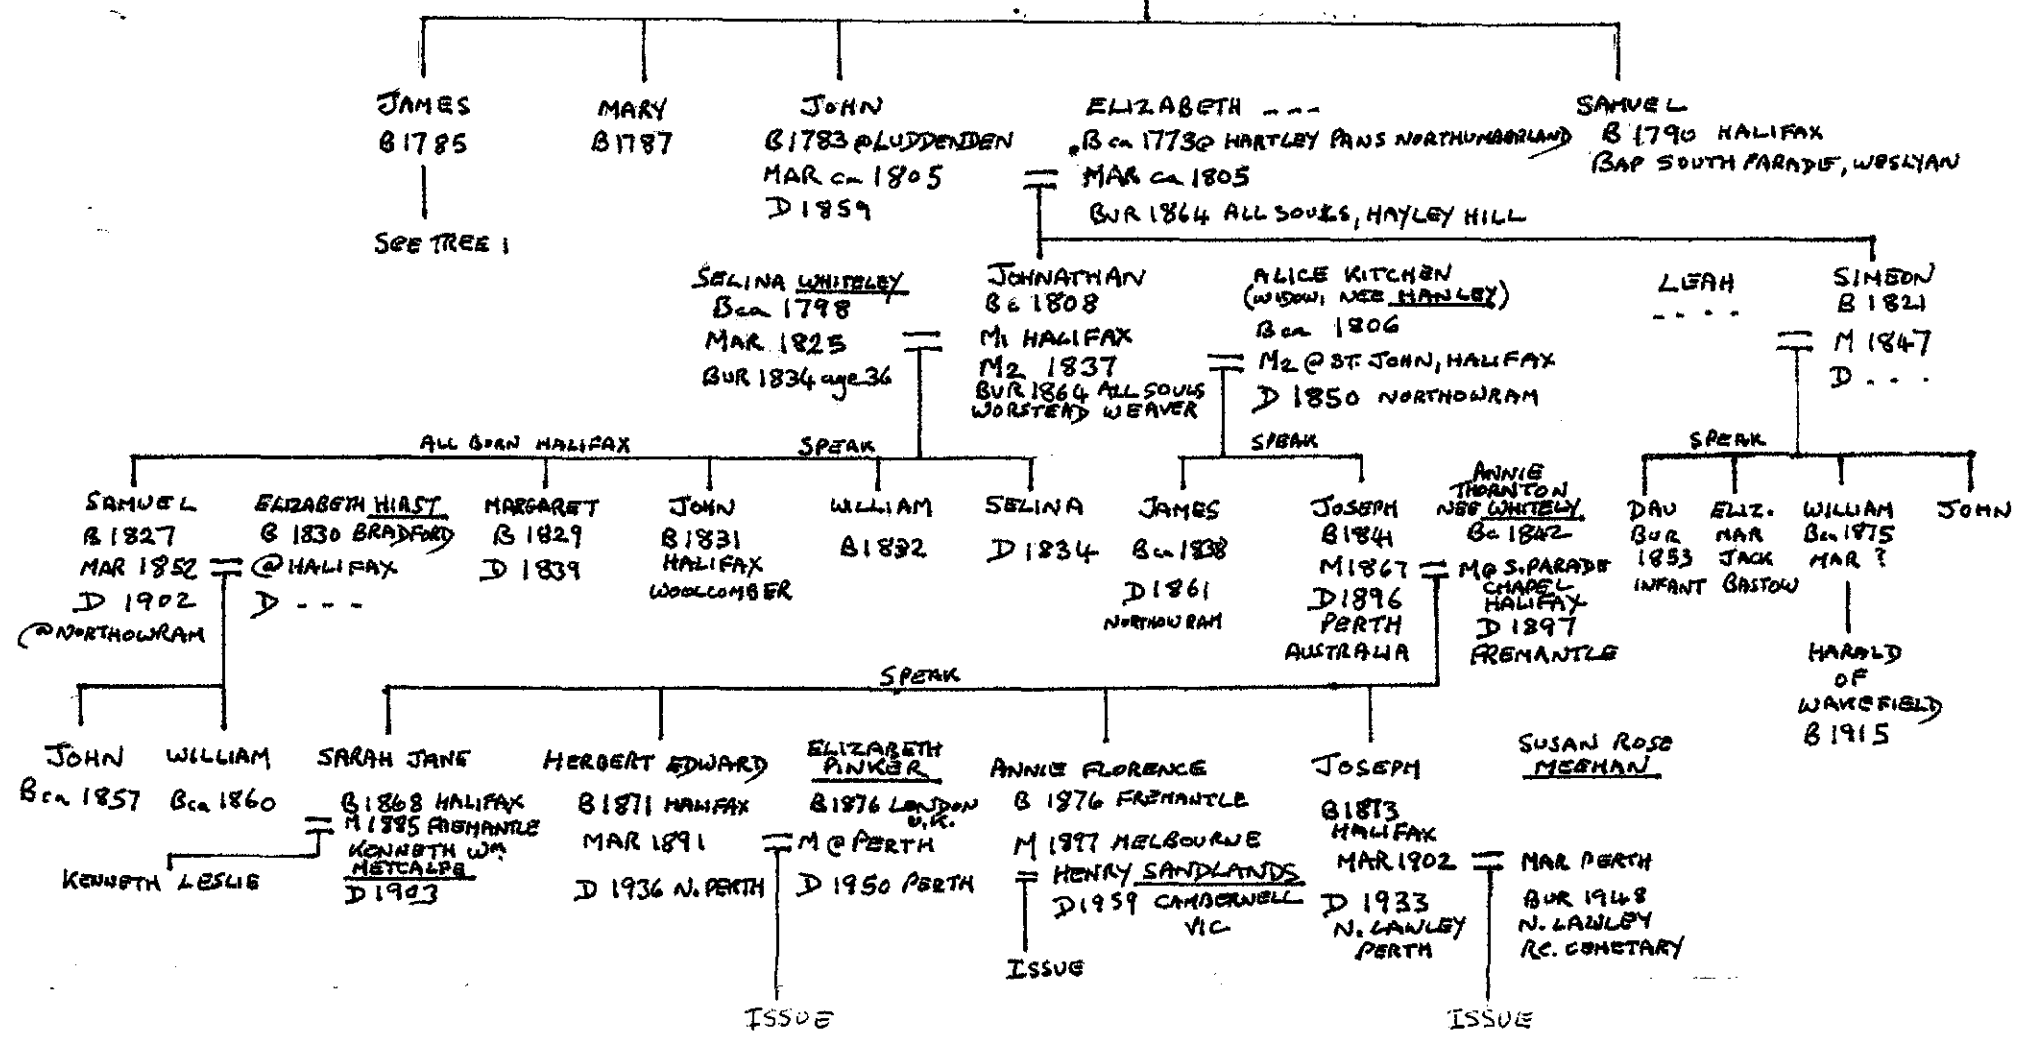 JAMES
B 1785
SEE TREE 1
MARY
B 1787
JOHN
B 1783 @ LUDDENDEN
MAR ca 1805
D 1859
ELIZABETH ---
B ca 1773@ HARTLEY PANS NORTHUMBERLAND
MAR ca 1805
BUR 1864 ALL SOULS, HAYLEY HILL
SAMUEL
B 1790 HALIFAX
BAP SOUTH PARADE, WESLYAN
SELINA WHITELEY
B ca 1798
MAR 1825
BUR 1834 age 36
JOHNATHAN
Bc 1808
M1 HALIFAX
M2 1837
BUR 1864 ALL SOULS
WORSTEAD WEAVER
ALICE KITCHEN
(WIDOW, NEE HANLEY)
B ca 1806
M2 @ ST. JOHN, HALIFAX
D 1850 NORTHOWRAM
LEAH
- - - -
SIMEON
B 1821
M 1847
D - - -
ALL BORN HALIFAX
SPEAK
SPEAK
SPEAK
SAMUEL
B 1827
MAR 1852
D 1902
@ NORTHOWRAM
ELIZABETH HIRST
B 1830 BRADFORD
@ HALIFAX
D - - -
MARGARET
B 1829
D 1839
JOHN
B 1831
HALIFAX
WOOLCOMBER
WILLIAM
B 1832
SELINA
D 1834
JAMES
B ca 1838
D 1861
NORTHOWRAM
JOSEPH
B 1841
M 1867
D 1896
PERTH
AUSTRALIA
ANNIE
THORNTON
NEE WHITELY
Bc 1842
M@ S. PARADE
CHAPEL
HALIFAX
D 1897
FREMANTLE
DAU
BUR
1853
INFANT
ELIZ.
MAR
JACK
BASTOW
WILLIAM
B ca 1875
MAR ?
HARALD
OF
WAKEFIELD
B 1915
JOHN
SPEAK
JOHN
B ca 1857
WILLIAM
B ca 1860
SARAH JANE
B 1868 HALIFAX
M 1885 FREMANTLE
KENNETH WM
METCALFE
D 1903
KENNETH LESLIE
HERBERT EDWARD
B 1871 HALIFAX
MAR 1891
D 1936 N. PERTH
ELIZABETH
PINKER
B 1876 LONDON
U.K.
M @ PERTH
D 1950 PERTH
ISSUE
ANNIE FLORENCE
B 1876 FREMANTLE
M 1897 MELBOURNE
HENRY SANDLANDS
D 1959 CAMBERWELL
VIC
ISSUE
JOSEPH
B 1873
HALIFAX
MAR 1902
D 1933
N. LAWLEY
PERTH
SUSAN ROSE
MEEHAN
MAR PERTH
BUR 1948
N. LAWLEY
RC. CEMETARY
ISSUE